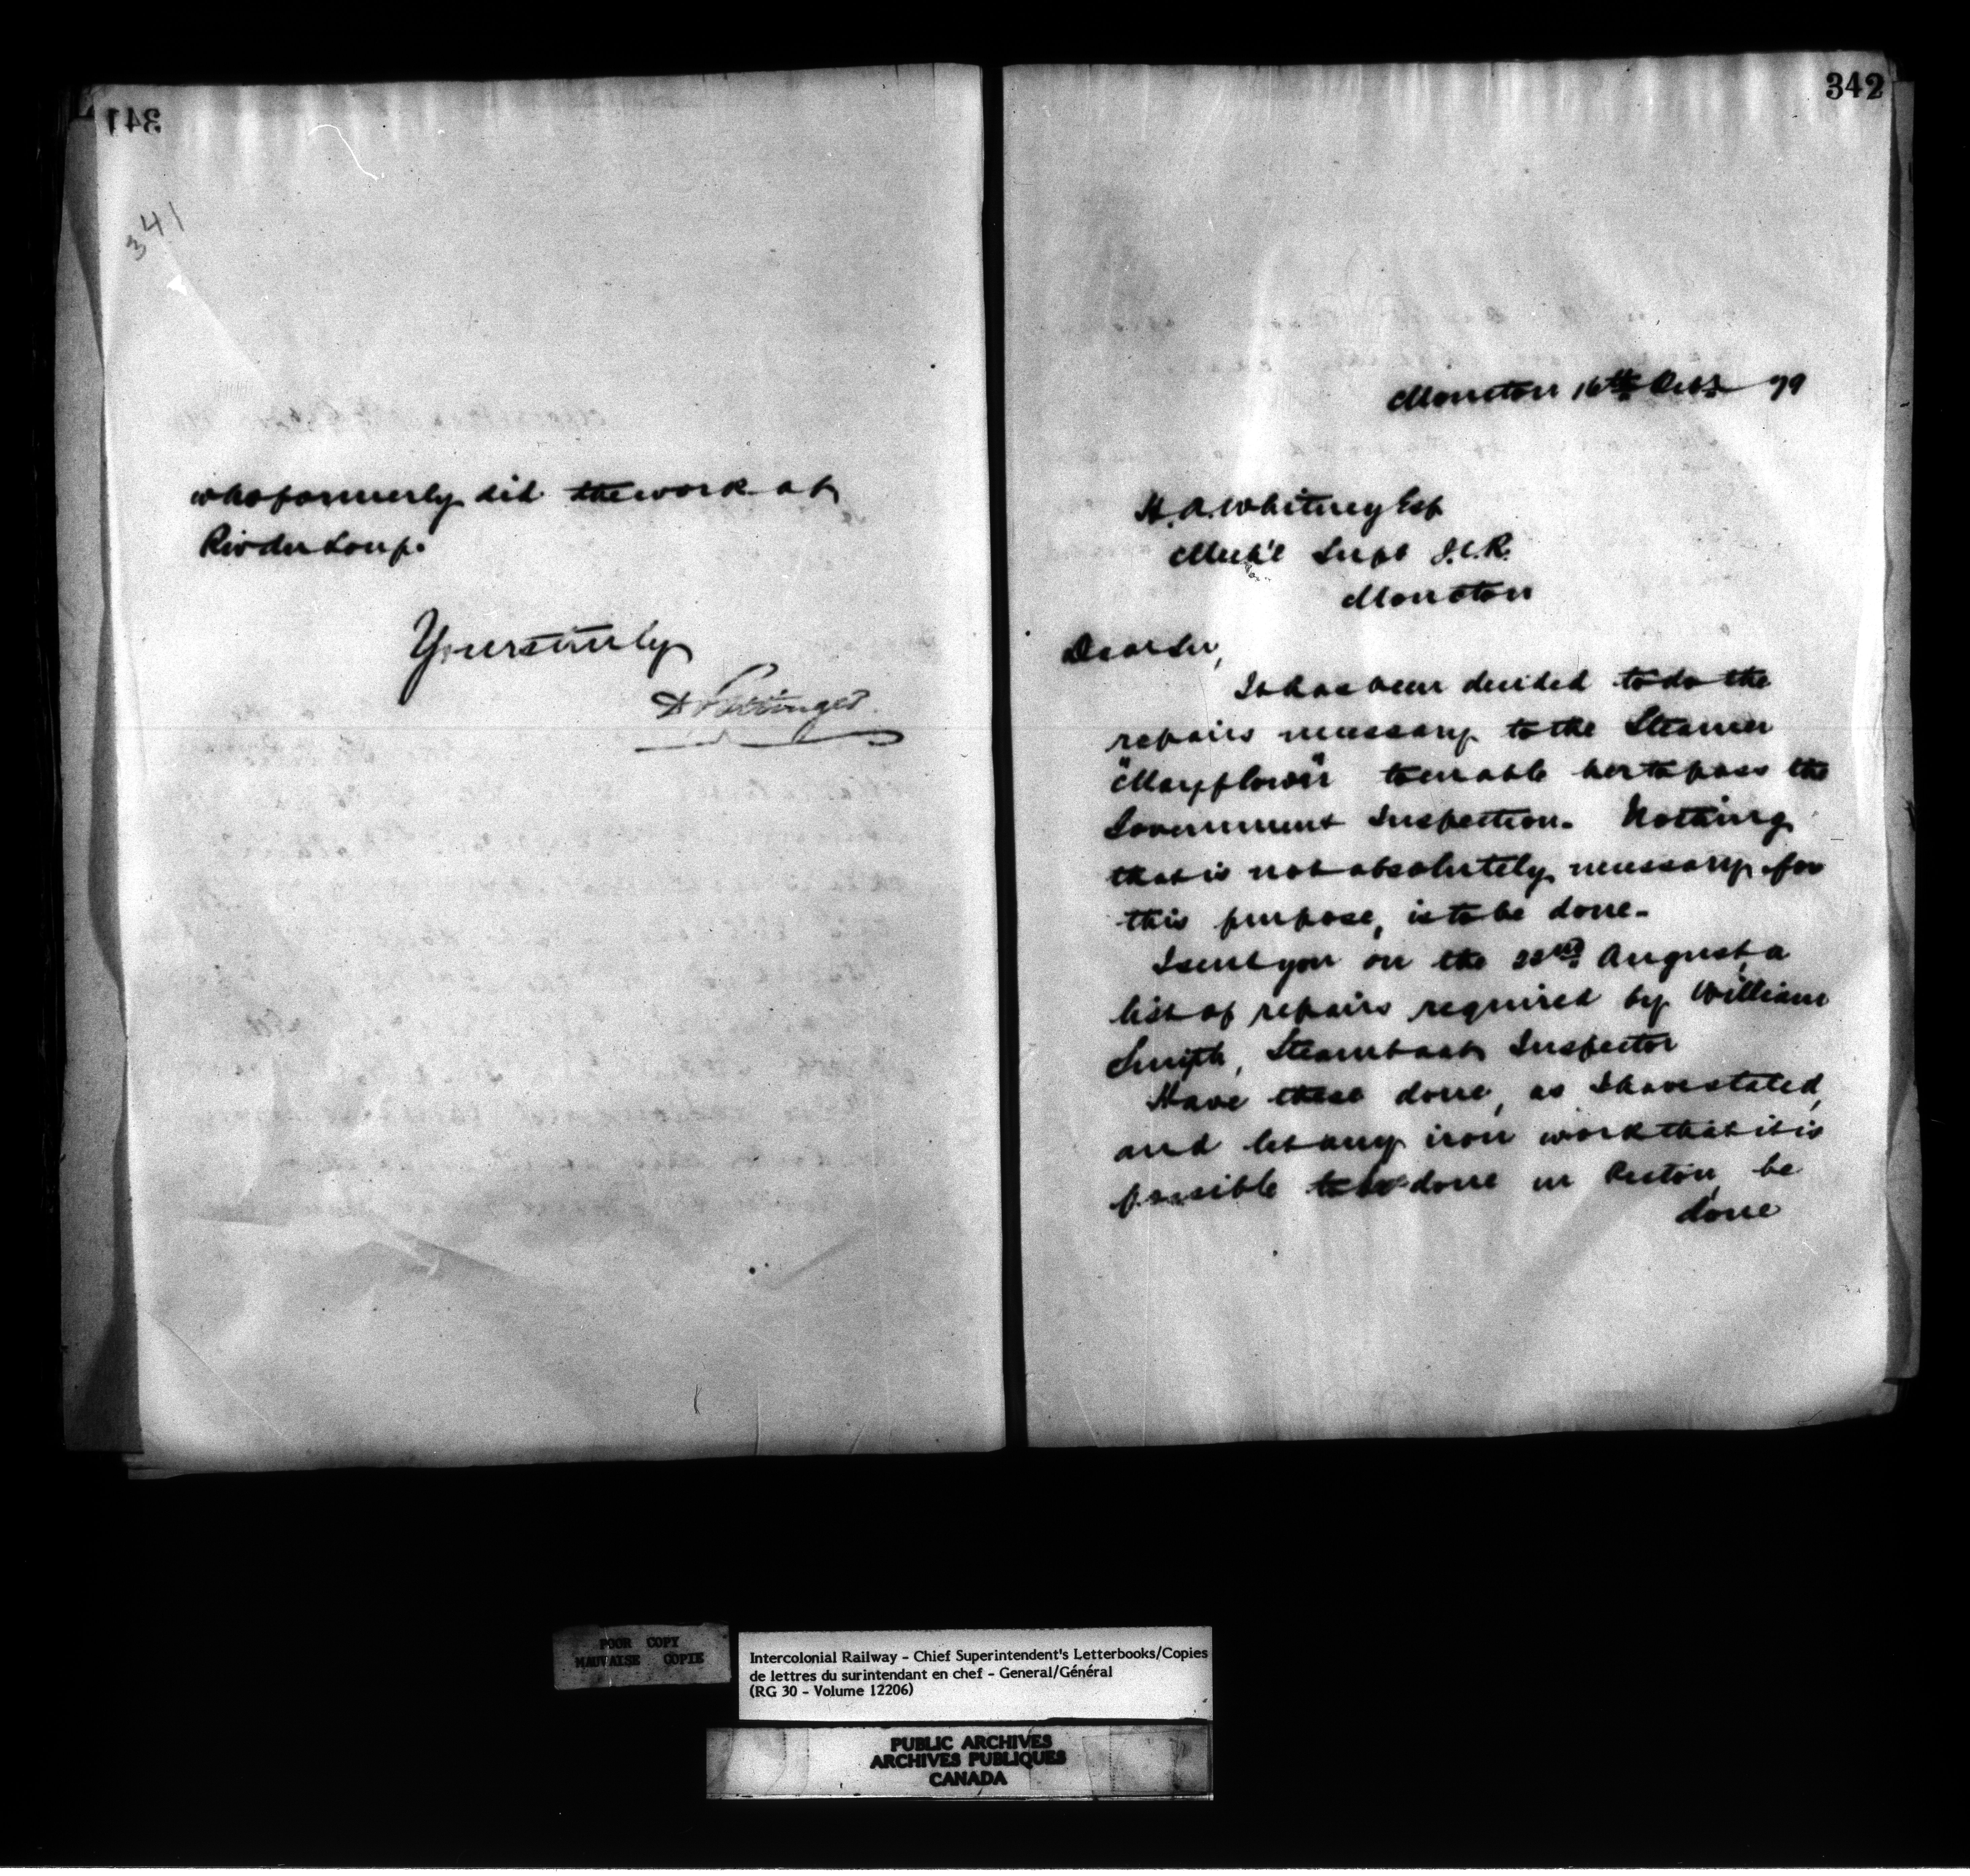 341
341
who formerly did the work at
Riv du Loup.
Yours truly
D Pottinger
342
Moncton 16th Octr 79
H. A. Whitney Esq
Mech'l Supt I.C.R.
Moncton
Dear Sir,
It has been decided to do the
repairs necessary to the Steamer
"Mayflower" to enable her to pass the
Government Inspection. Nothing
that is not absolutely necessary for
this purpose, is to be done.
I sent you on the 22nd August a
list of repairs required by William
Smith, Steamboat Inspector
Have these done, as I have stated,
and let any iron work that it is
possible to be done in Pictou, be
done
POOR COPY
MAUVAISE COPIE
Intercolonial Railway - Chief Superintendent's Letterbooks/Copies
de lettres du surintendant en chef - General/Général
(RG 30 - Volume 12206)
PUBLIC ARCHIVES
ARCHIVES PUBLIQUES
CANADA